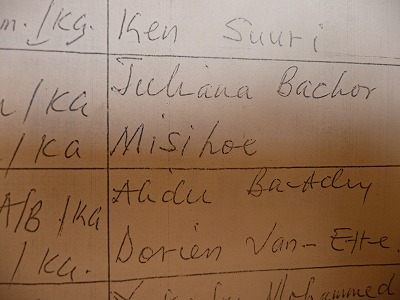 m./KG. Ken Suuri
/KA Juliana Bachor
/KA Misihoe
A/B /KA Abdu
/KA. Dorien Van-Ette.
Mohammed